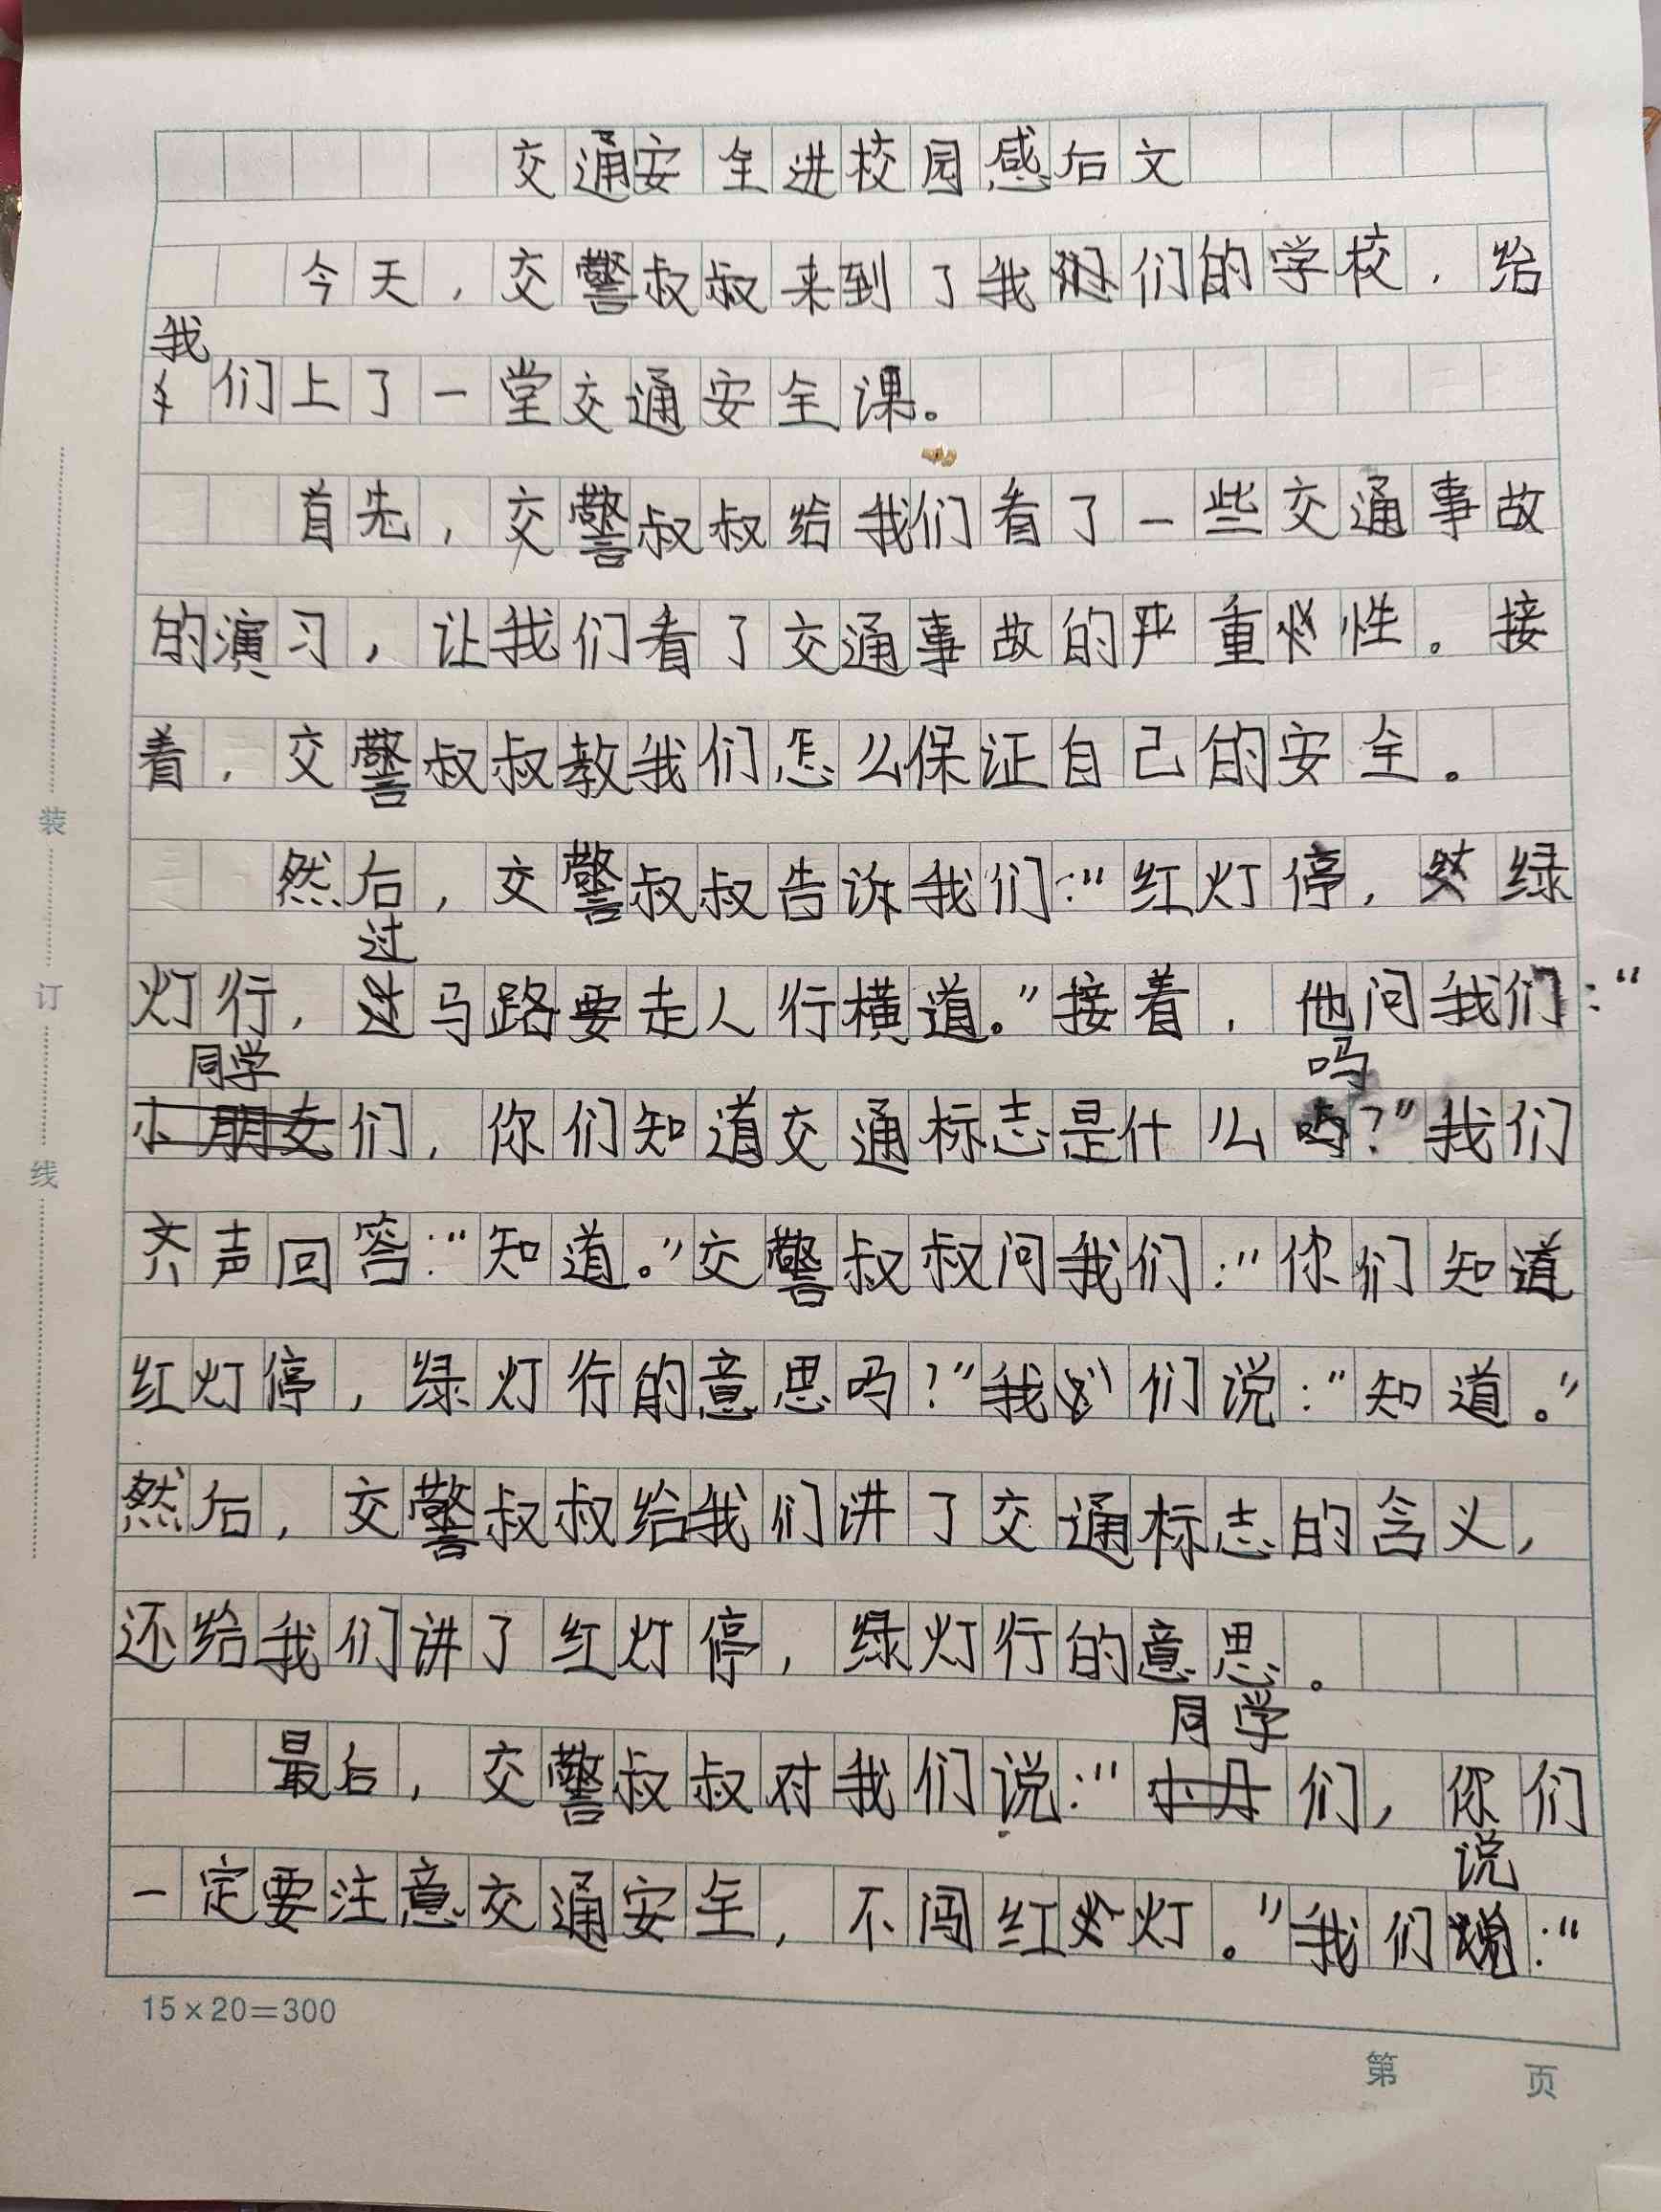 交通安全进校园感后文
今天，交警叔叔来到了我们的学校，给
我
们上了一堂交通安全课。
首先，交警叔叔给我们看了一些交通事故
的演习，让我们看了交通事故的严重性。接
着，交警叔叔教我们怎么保证自己的安全。
然后，交警叔叔告诉我们：“红灯停，绿
过
灯行，马路要走人行横道。”接着，他问我们：“
同学
吗
小朋友们，你们知道交通标志是什么？”我们
齐声回答：“知道。”交警叔叔问我们：“你们知道
红灯停，绿灯行的意思吗？”我们说：“知道。”
然后，交警叔叔给我们讲了交通标志的含义，
还给我们讲了红灯停，绿灯行的意思。
同学
最后，交警叔叔对我们说：“们，你们
说
一定要注意交通安全，不闯红灯。”我们：“
15×20=300
第 页
装
订
线